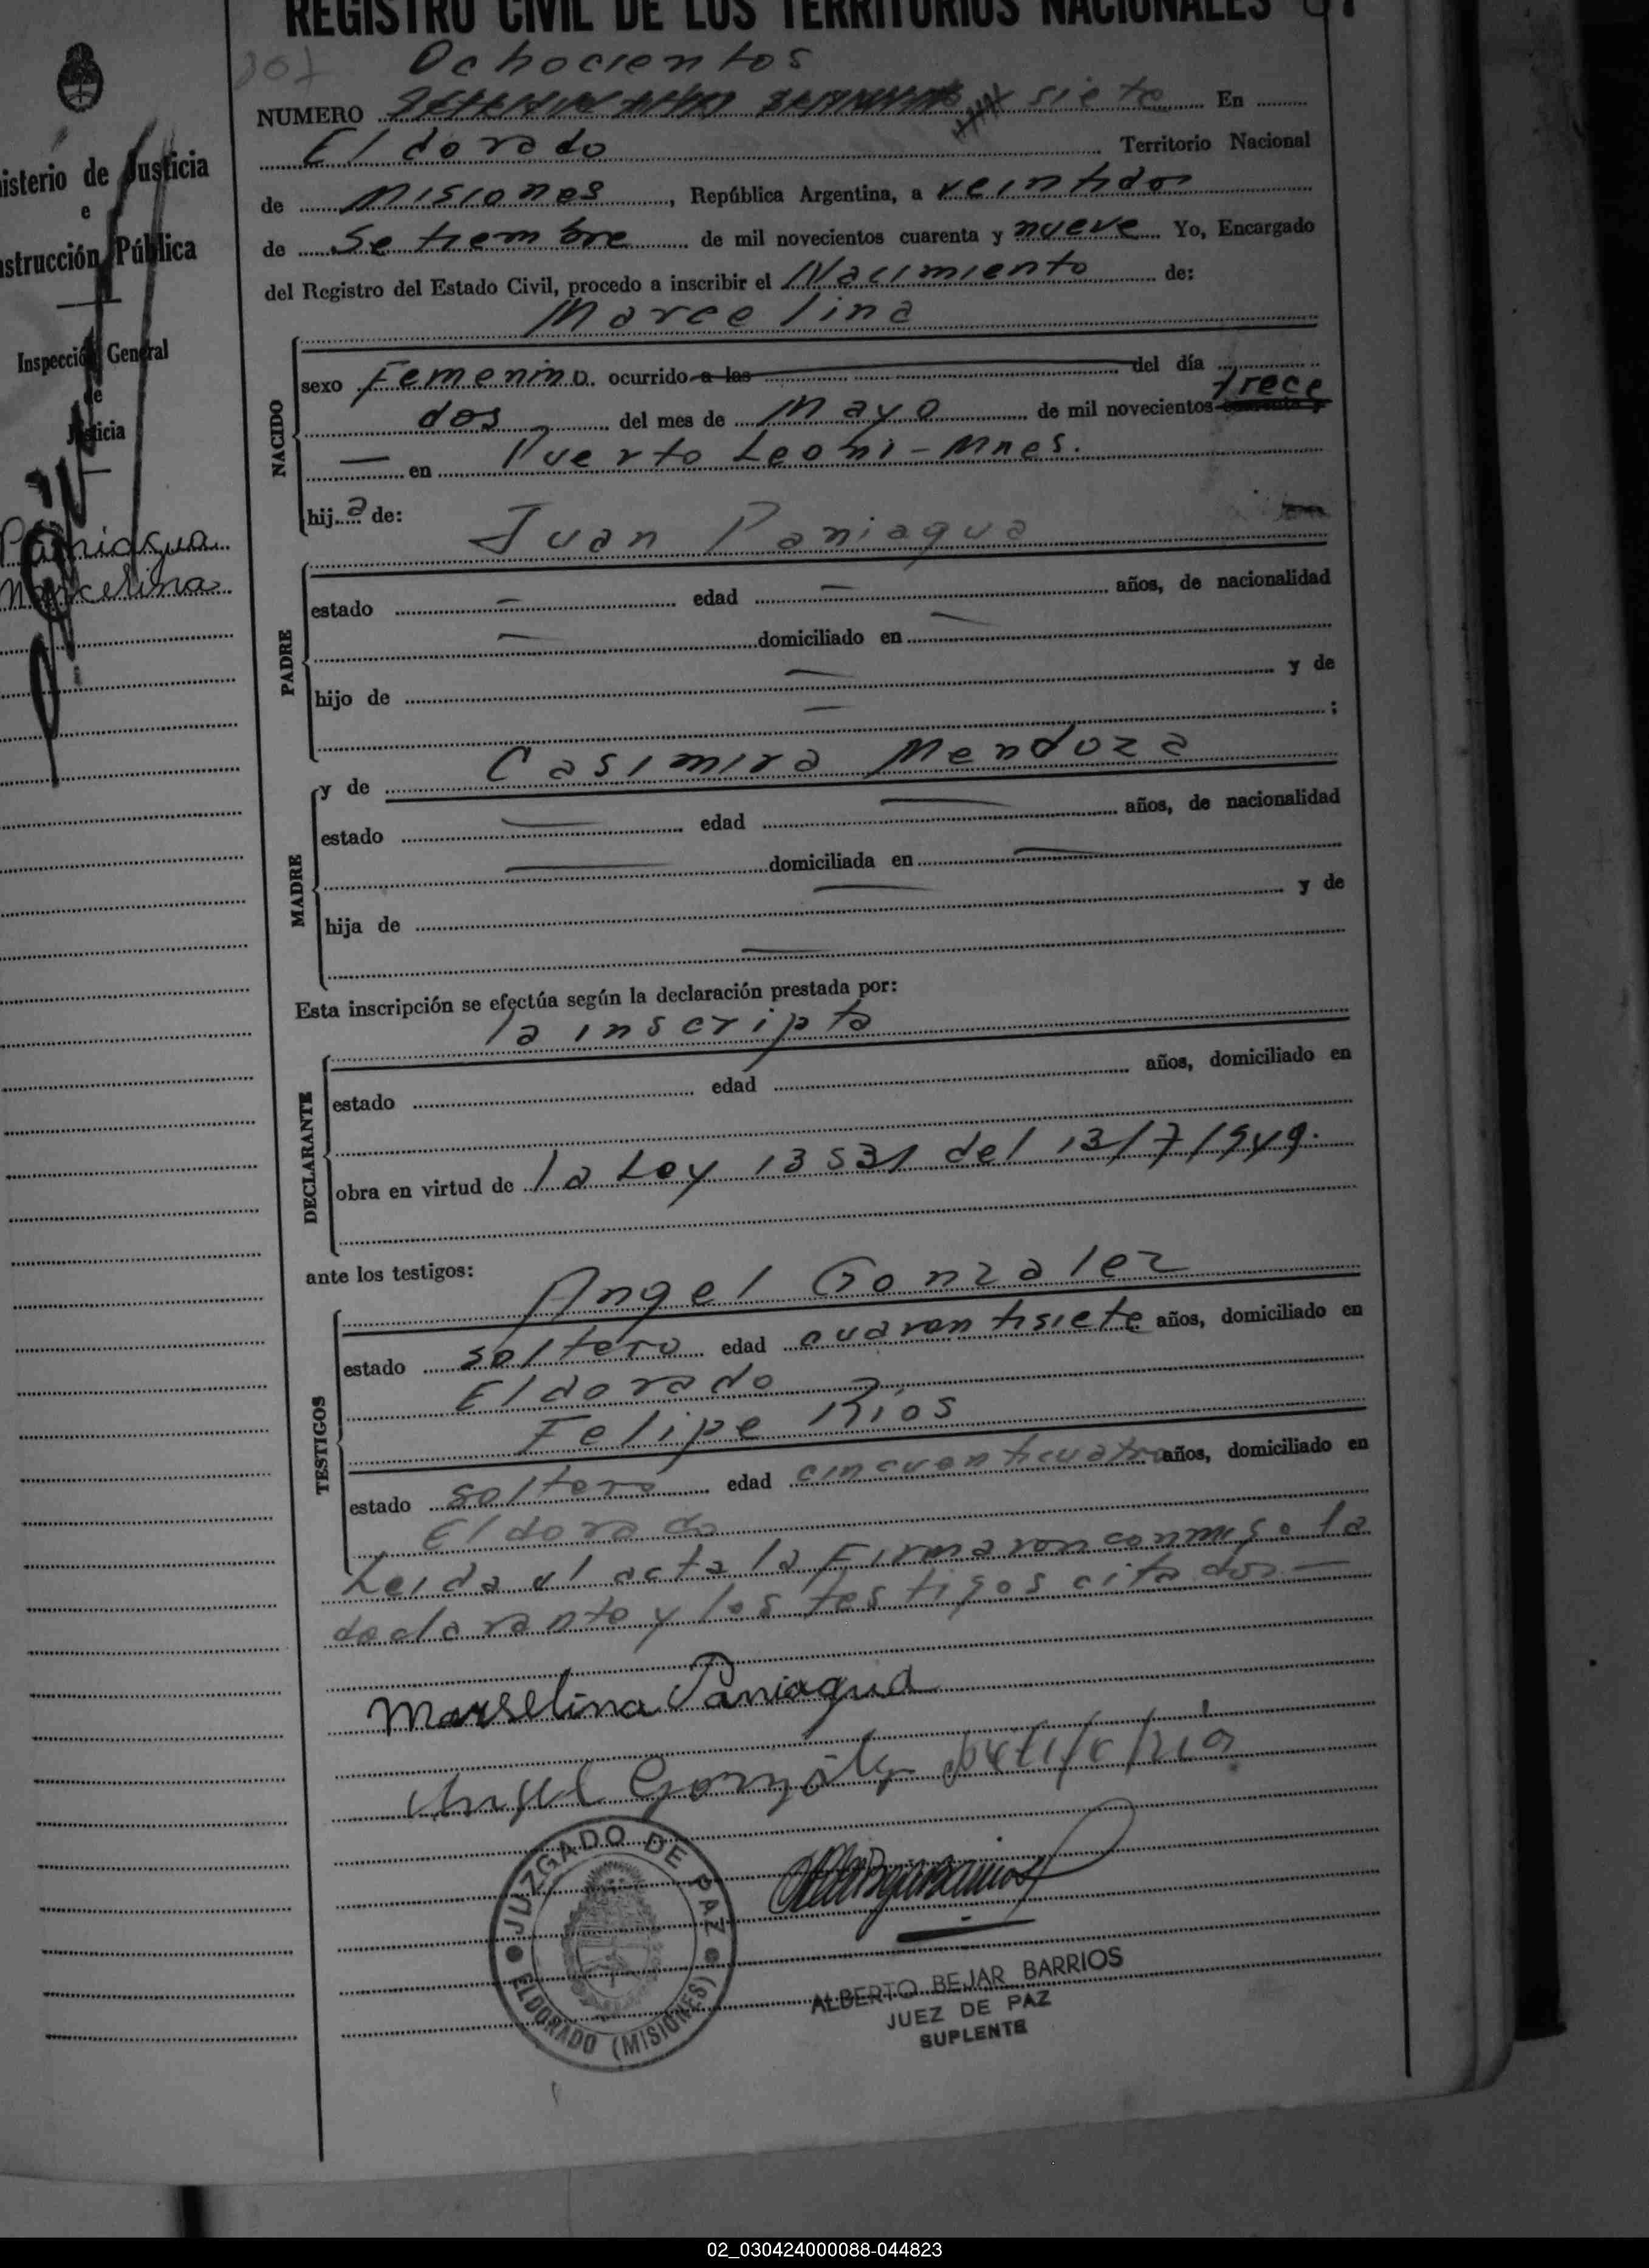 REGISTRO CIVIL DE LOS TERRITORIOS NACIONALES
807
Ochocientos
NUMERO siete En
Eldorado Territorio Nacional
de Misiones, República Argentina, a veintidos
de Setiembre de mil novecientos cuarenta y nueve Yo, Encargado
del Registro del Estado Civil, procedo a inscribir el Nacimiento de:
Marcelina
NACIDO
sexo Femenino ocurrido a las del día
trece
dos del mes de Mayo de mil novecientos
en Puerto Leoni - Mnes.
hija de:
Juan Paniagua
PADRE
estado — edad — años, de nacionalidad
— domiciliado en —
hijo de — y de
— ;
MADRE
y de Casimira Mendoza
estado — edad — años, de nacionalidad
— domiciliada en —
hija de — y de
—
Esta inscripción se efectúa según la declaración prestada por:
la inscripta
DECLARANTE
estado edad años, domiciliado en
obra en virtud de la Ley 13531 del 13/7/949.
ante los testigos:
Angel Gonzalez
TESTIGOS
estado soltero edad cuarentisiete años, domiciliado en
Eldorado
Felipe Rios
estado soltero edad cincuenticuatro años, domiciliado en
Eldorado
Leida el acta la Firmaron conmigo la
declarante y los testigos citados.—
Marselina Paniagua
Angel González
JUZGADO DE PAZ
ELDORADO (MISIONES)
ALBERTO BEJAR BARRIOS
JUEZ DE PAZ
SUPLENTE
nisterio de Justicia
e
nstrucción Pública
Inspección General
de
Justicia
Paniagua
Marcelina
02_030424000088-044823